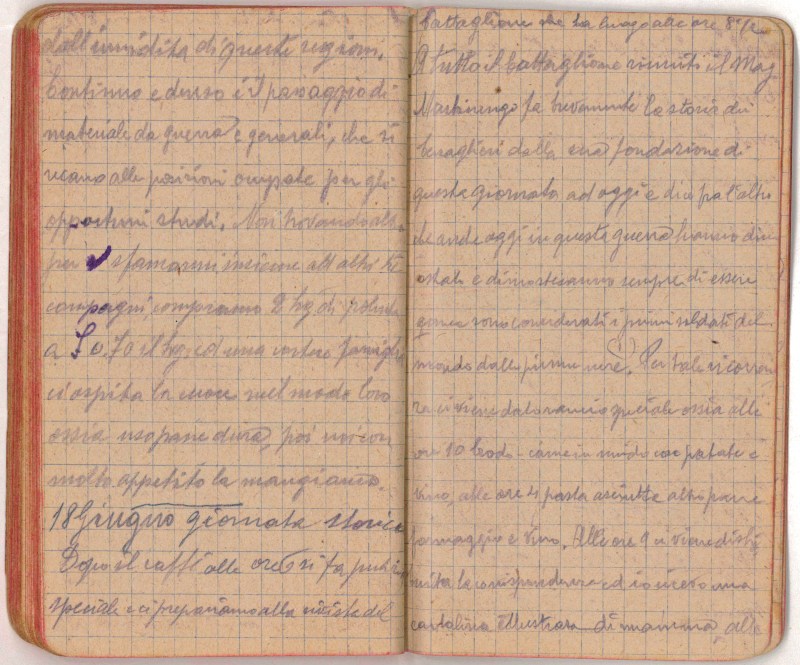 dall'umidità di queste regioni.
Continuo e denso è il passaggio di
materiale da guerra e generali, che si
recano alle posizioni occupate per gli
opportuni studi. Non trovando altro
per sfamarsi insieme ad altri tre
compagni, compriamo 2 hg di polenta
a £ 0.70 il hg, ed una cortese famiglia
ci ospita la cuoce nel modo loro
ossia uso pane dura, poi noi con
molto appetito la mangiamo.
18 Giugno giornata storica
Dopo il caffè alle ore 6 si fa pulizia
speciale e ci prepariamo alla rivista del
battaglione che ha luogo alle ore 8 1/2
A tutto il battaglione riuniti il Mag.
Martinengo fa brevemente la storia dei
bersaglieri dalla sua fondazione di
questa giornata ad oggi e dice fra l'altro
che anche oggi in questa guerra hanno dim
ostrato e dimostreranno sempre di essere
come sono considerati i primi soldati del
mondo dalle piume nere. Per tale ricorren
za ci viene dato rancio speciale ossia alle
ore 10 brodo - carne in umido con patate e
vino, alle ore 4 pasta asciutta altro pane
formaggio e vino. Alle ore 9 ci viene distri
buita la corrispondenza ed io ricevo una
cartolina illustrata di mamma, alle